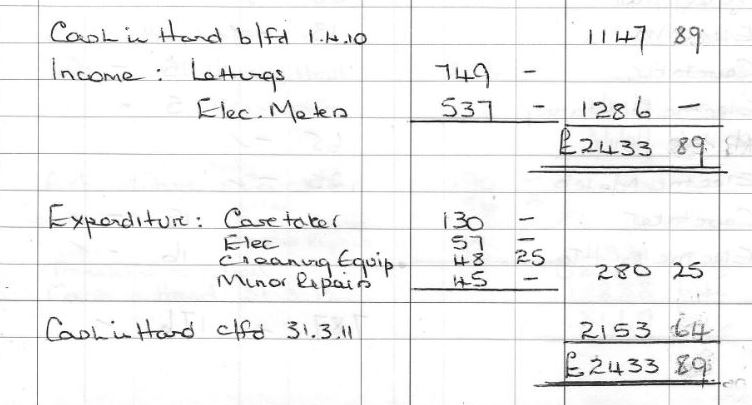 Cash in Hand b/fd 1.4.10 1147 89
Income: Lettings 749 -
Elec. Meters 537 - 1286 -
£2433 89
Expenditure: Caretaker 130 -
Elec 57 -
Cleaning Equip 48 25
Minor Repairs 45 - 280 25
Cash in Hand c/fd 31.3.11 2153 64
£2433 89